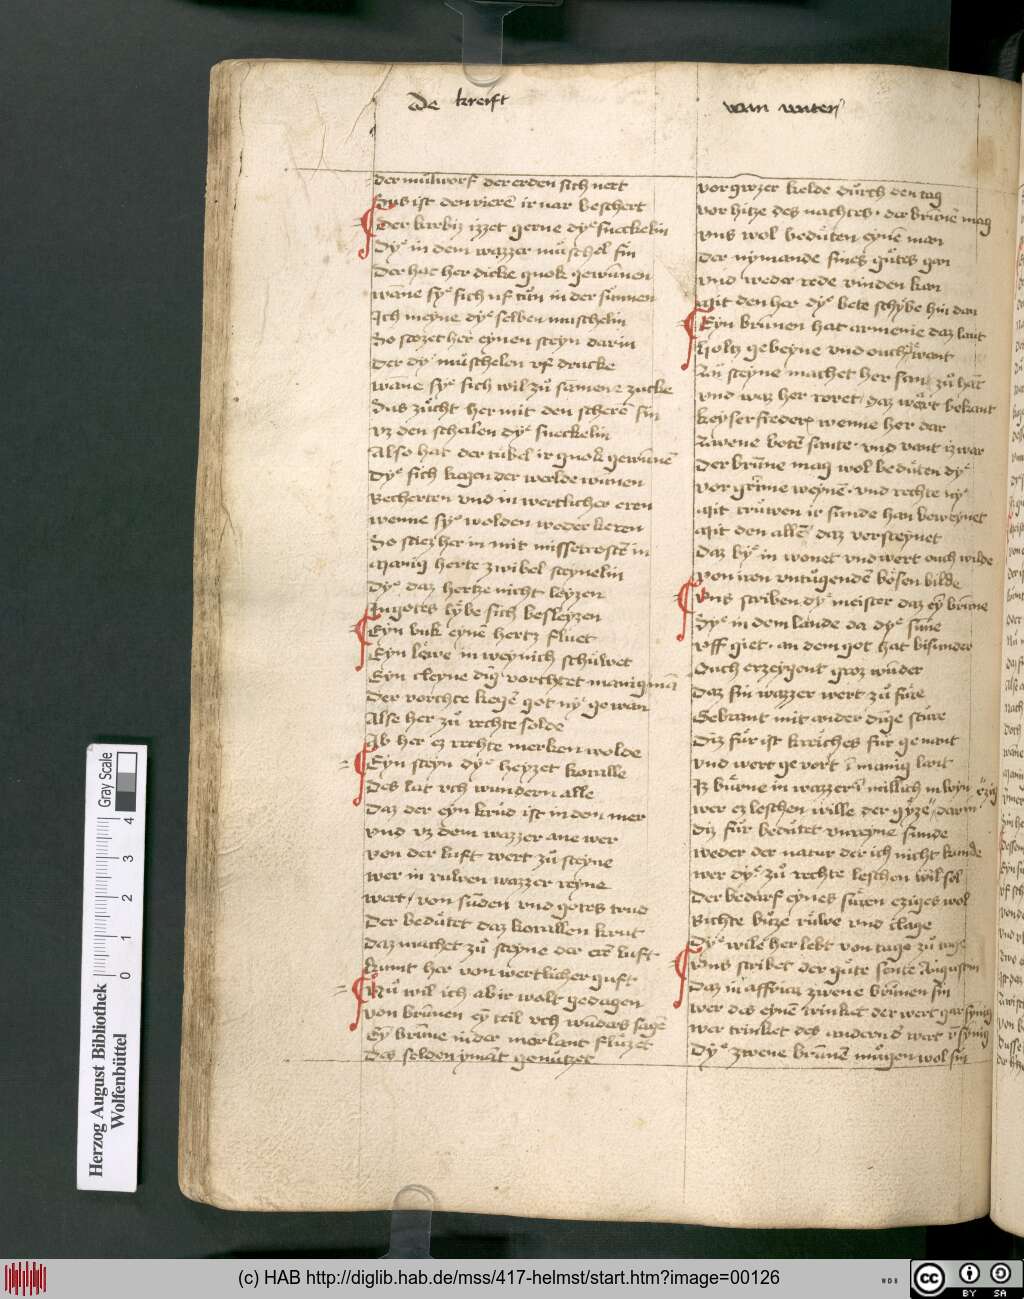 De kreift
der mulworf der erden sich nert
Sus ist den vieren ir nar beschert
Der krebiz izzet gerne dy sneckelin
Dy in dem wazzer muschel sin
Der hat her dicke quok gewunnen
wanne sy sich uf tun in der sunnen
Ich meyne dy selben muschelin
So stozet her eynen steyn darin
Der dy muschelen uf drucke
wane sy sich wil zu samene zucke
Sus zucht her mit den scheren sin
vz den schalen dy sneckelin
Also hat der tubel ir quok gewunnen
Dy sich kegen der werlde wunnen
Recherten vnd in wertlicher eren
wenne sy wolden weder keren
So stiez her in mit missetrosten in
Manig herte zwibel steynelin
Dy daz hertze nicht leyzen
In gotes lybe sich besleyzen
Eyn buk eynen hertz fluet
Eyn lewe in weynich schuwet
Eyn cleyne ding vorchtet manig man
Der vorchte kegen got ny gewan
Alse her zu rechte solde
Ab her ez rechte merken wolde
Eyn steyn dy heyzet koralle
Des lat vch wundern alle
Daz der eyn krud ist in den mer
vnd vz dem wazzer ane wer
von der luft wert zu steyne
wer in ruwen wazzer reyne
wert von sunden vnd gotes trud
Der bedutet daz korallen krut
Daz machet zu steyne der erer luft
kumt her von wertlicher guft
Nu wil ich abir walt gedagen
von brunnen eyn teil vch wunders sagen
Eyn brunne in der morlant fluzet
Des selden ymant genutzet
van water
vor grozer kelde durch den tag
vor hitze des nachtes der brunne mag
vns wol beduten eynen man
Der nymande sines gutes gan
vnd weder rede vinden kan
Mit den her dy bete schybe hin dan
Eyn brunnen hat armenie daz lant
Holtz gebeyne vnd ouch want
Zu steyne machet her san zu hant
vnd waz her roret daz wert bekant
keyser frederich wenne her dar
Zwene boten sante vnd vant iz war
Der brunne mag wol beduten dy
vor grimme weynen vnd rechte ny
Mit truwen ir sunde han beweynet
Mit den allen daz versteynet
Daz by in wonet vnd wert ouch wilde
von iren vntugenden bosen bilde
Vns scriben dy meister daz eyn brunne
Sy in dem lande da dy sunne
vff giet an dem got hat bisunder
Ouch erzeygent groz wunder
Daz sin wazzer wert zu fure
Gebrant mit ander dinge sture
Diz fur ist kreiches fur genant
vnd wert gevort in manig lant
Iz burne in wazzer millich in wyn ezig
wer ez leschen wille der gyze darin
Diz fur bedutet vnreyne sunde
weder der natur der ich nicht kunde
wer dy zu rechte leschen wil sol
Der bedarf eynes suren eziges wol
Richte buze ruwe vnd clage
Dy wile her lebt von tage zu tage
Vns scribet der gute sente Augustin
Daz in affrica zwene brunnen sin
wer des eynen trinket der wert gar synnig
wer trinket des andern der wert vnsynnig
Dy zwene brunnen mugen wol sin
Gray Scale
0 1 2 3 4
Herzog August Bibliothek
Wolfenbüttel
(c) HAB http://diglib.hab.de/mss/417-helmst/start.htm?image=00126
WDB
cc
BY SA